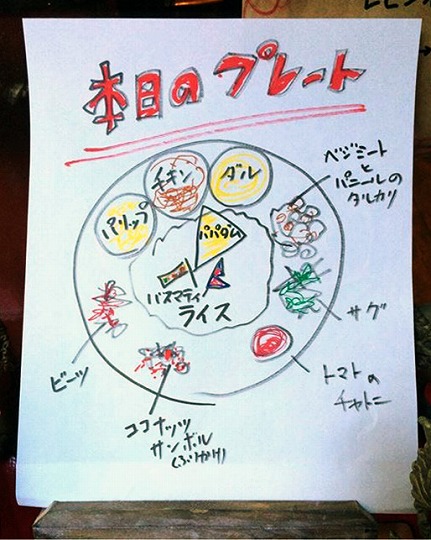 本日のプレート
チキン
ダル
パリップ
パパダム
バスマティ
ライス
ベジミート
と
パニールの
タルカリ
サグ
トマトの
チャトニ
ココナッツ
サンボル
(ふりかけ)
ビーツ